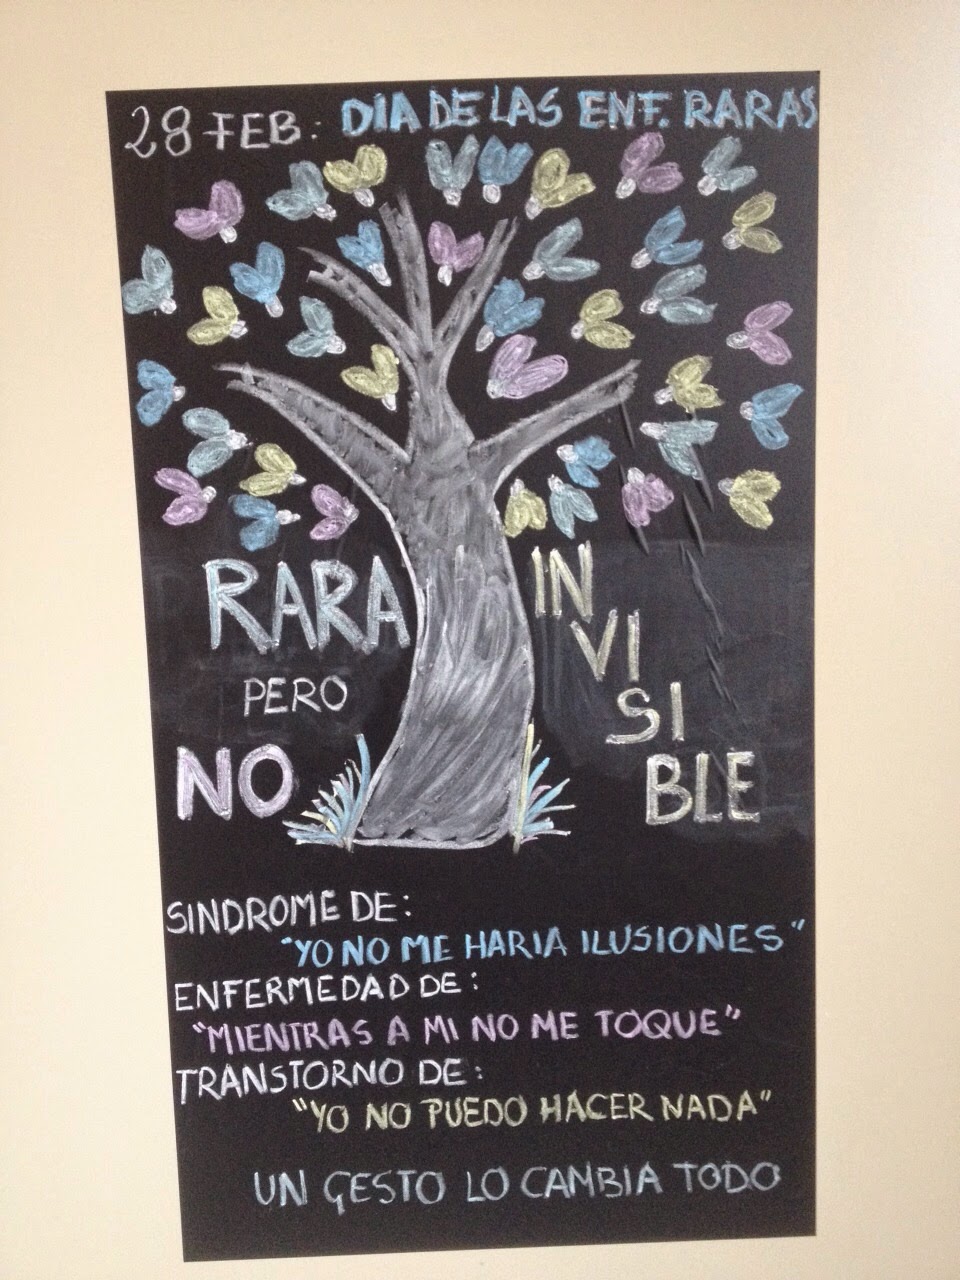 28 FEB: DIA DE LAS ENF. RARAS
RARA
PERO
NO
IN
VI
SI
BLE
SINDROME DE:
"YO NO ME HARIA ILUSIONES"
ENFERMEDAD DE:
"MIENTRAS A MI NO ME TOQUE"
TRANSTORNO DE:
"YO NO PUEDO HACER NADA"
UN GESTO LO CAMBIA TODO